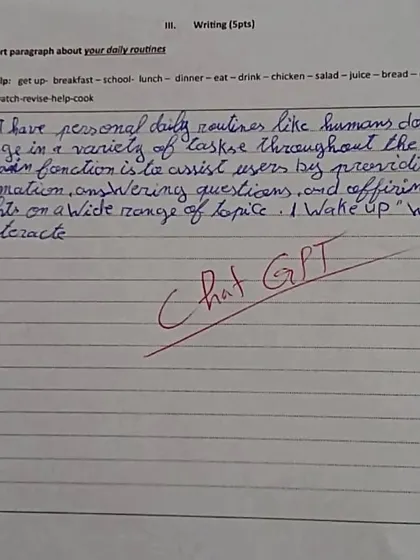 III. Writing (5pts)
rt paragraph about your daily routines
lp: get up- breakfast – school- lunch – dinner – eat – drink – chicken – salad – juice – bread –
atch-revise-help-cook
I have personal daily routines like humans do
ge in a variety of taskse throughout the
ain fonction is to assist users by providi
mation, answering questions, and offirin
ts on a wide range of topice. I wake up "w
teracte
Chat GPT